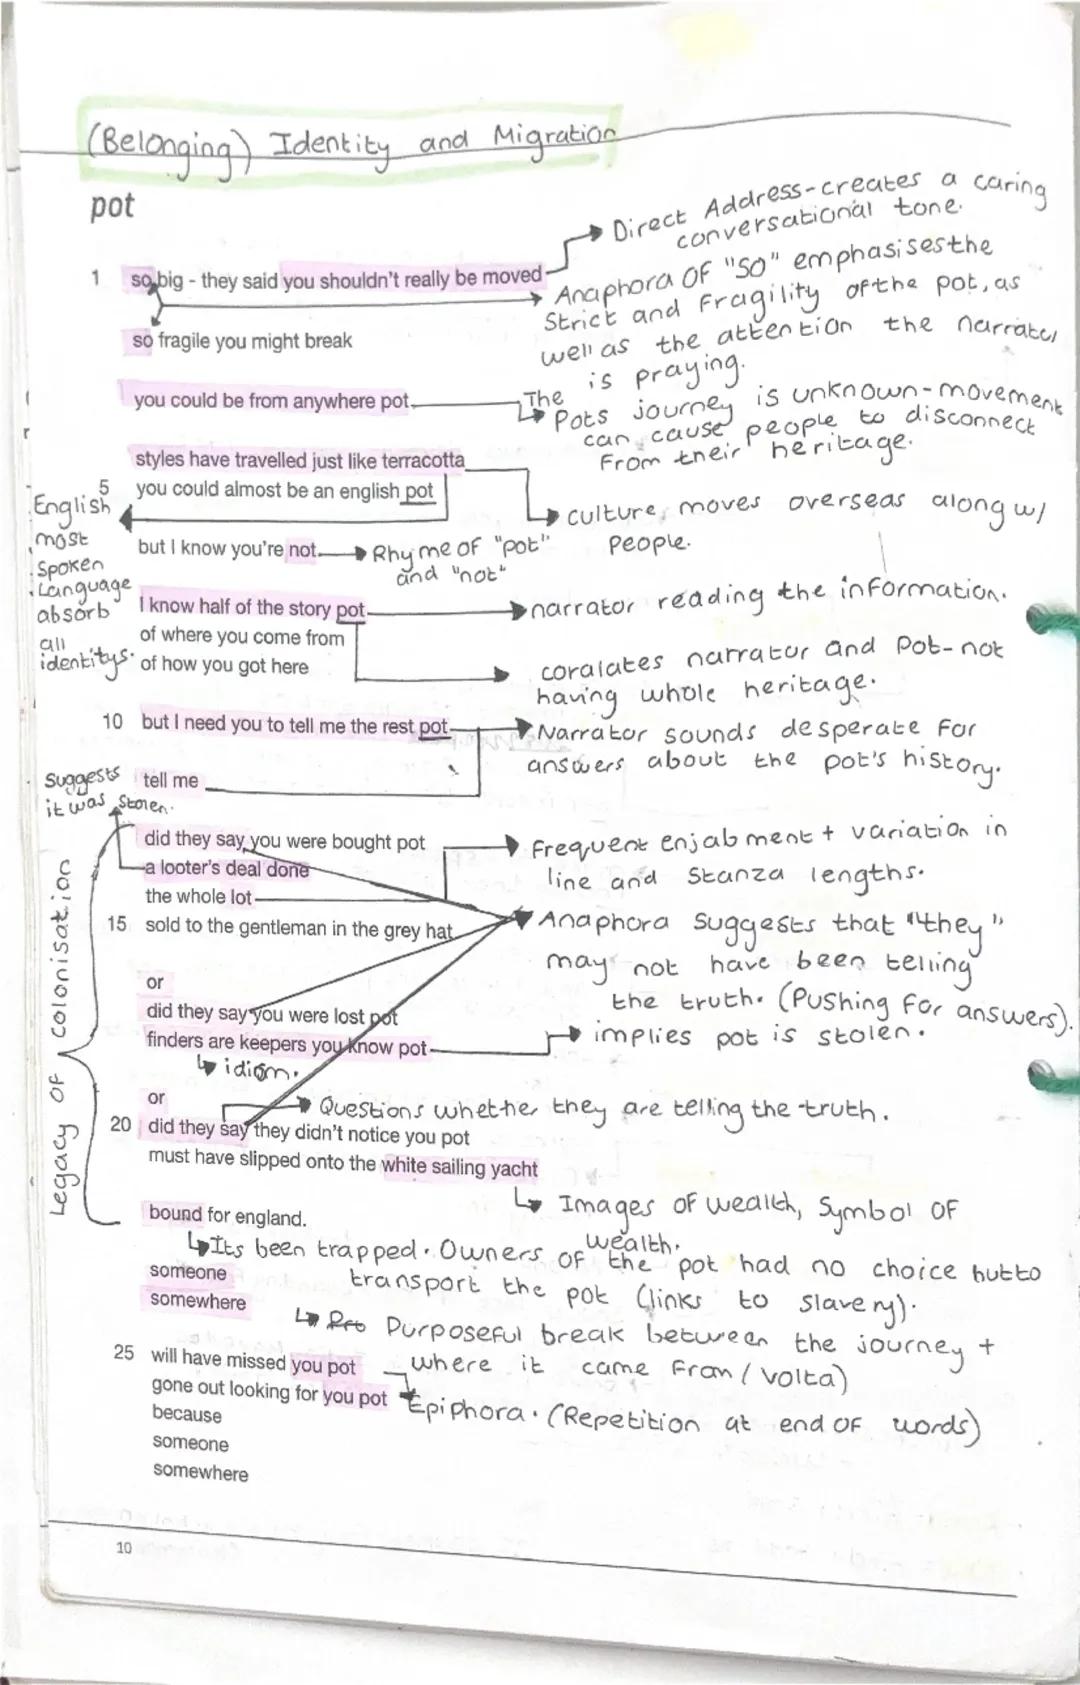 (Belonging) Identity and Migration
pot
Direct Address-creates a caring
conversational tone.
1 so big - they said you shouldn't really be moved
Anaphora of "so" emphasises the
Strict and Fragility of the pot, as
well as the attention the narrator
is praying.
so fragile you might break
you could be from anywhere pot
The
Pots journey is unknown-movement
can cause people to disconnect
From their heritage.
styles have travelled just like terracotta
5 you could almost be an english pot
culture moves overseas along w/
People.
English
most
Spoken
Language
absorb
all
identitys.
but I know you're not
Rhyme of "pot"
and "not"
I know half of the story pot
narrator reading the information.
of where you come from
of how you got here
coralates narrator and Pot-not
having whole heritage.
10 but I need you to tell me the rest pot
Narrator sounds desperate For
answers about the pot's history.
tell me
Suggests
it was stolen.
did they say you were bought pot
a looter's deal done
the whole lot
Frequent enjabment + variation in
line and Stanza lengths.
15 sold to the gentleman in the grey hat
Anaphora Suggests that "they"
may not have been telling
the truth. (Pushing For answers).
or
did they say you were lost pot
finders are keepers you know pot
implies pot is stolen.
idiom.
Legacy of Colonisation
or
Questions whether they are telling the truth.
20 did they say they didn't notice you pot
must have slipped onto the white sailing yacht
Images of wealth, Symbol OF
wealth.
bound for england.
Its been trapped. Owners of the pot had no choice but to
transport the pot (links to slavery).
someone
somewhere
Pro Purposeful break between the journey +
where it came From / Volta)
25 will have missed you pot
gone out looking for you pot
Epiphora. (Repetition at end of words)
because
someone
somewhere
10